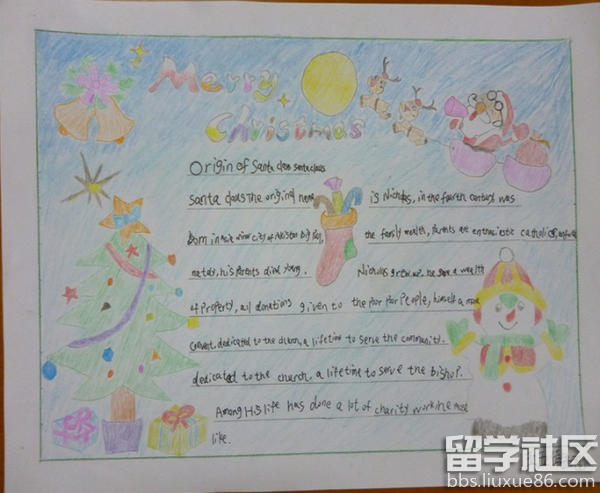 Merry
Christmas
Origin of Santa claus santa claus
Santa claus The original name is Nicholas, in the fourth century was
Born in Asia minor city of big the family wealth, Parents are enthusiastic catholics,
nately, his parents died young. Nicholas grew up, he gave a wealth
of Property, all donations given to the Poor Poor People, himself a monk
convent, dedicated to the church, a lifetime to serve the community.
dedicated to the church, a lifetime to serve the bishop.
Among His life has done a lot of charity work, he most
like.
留学社区
bbs.liuxue86.com